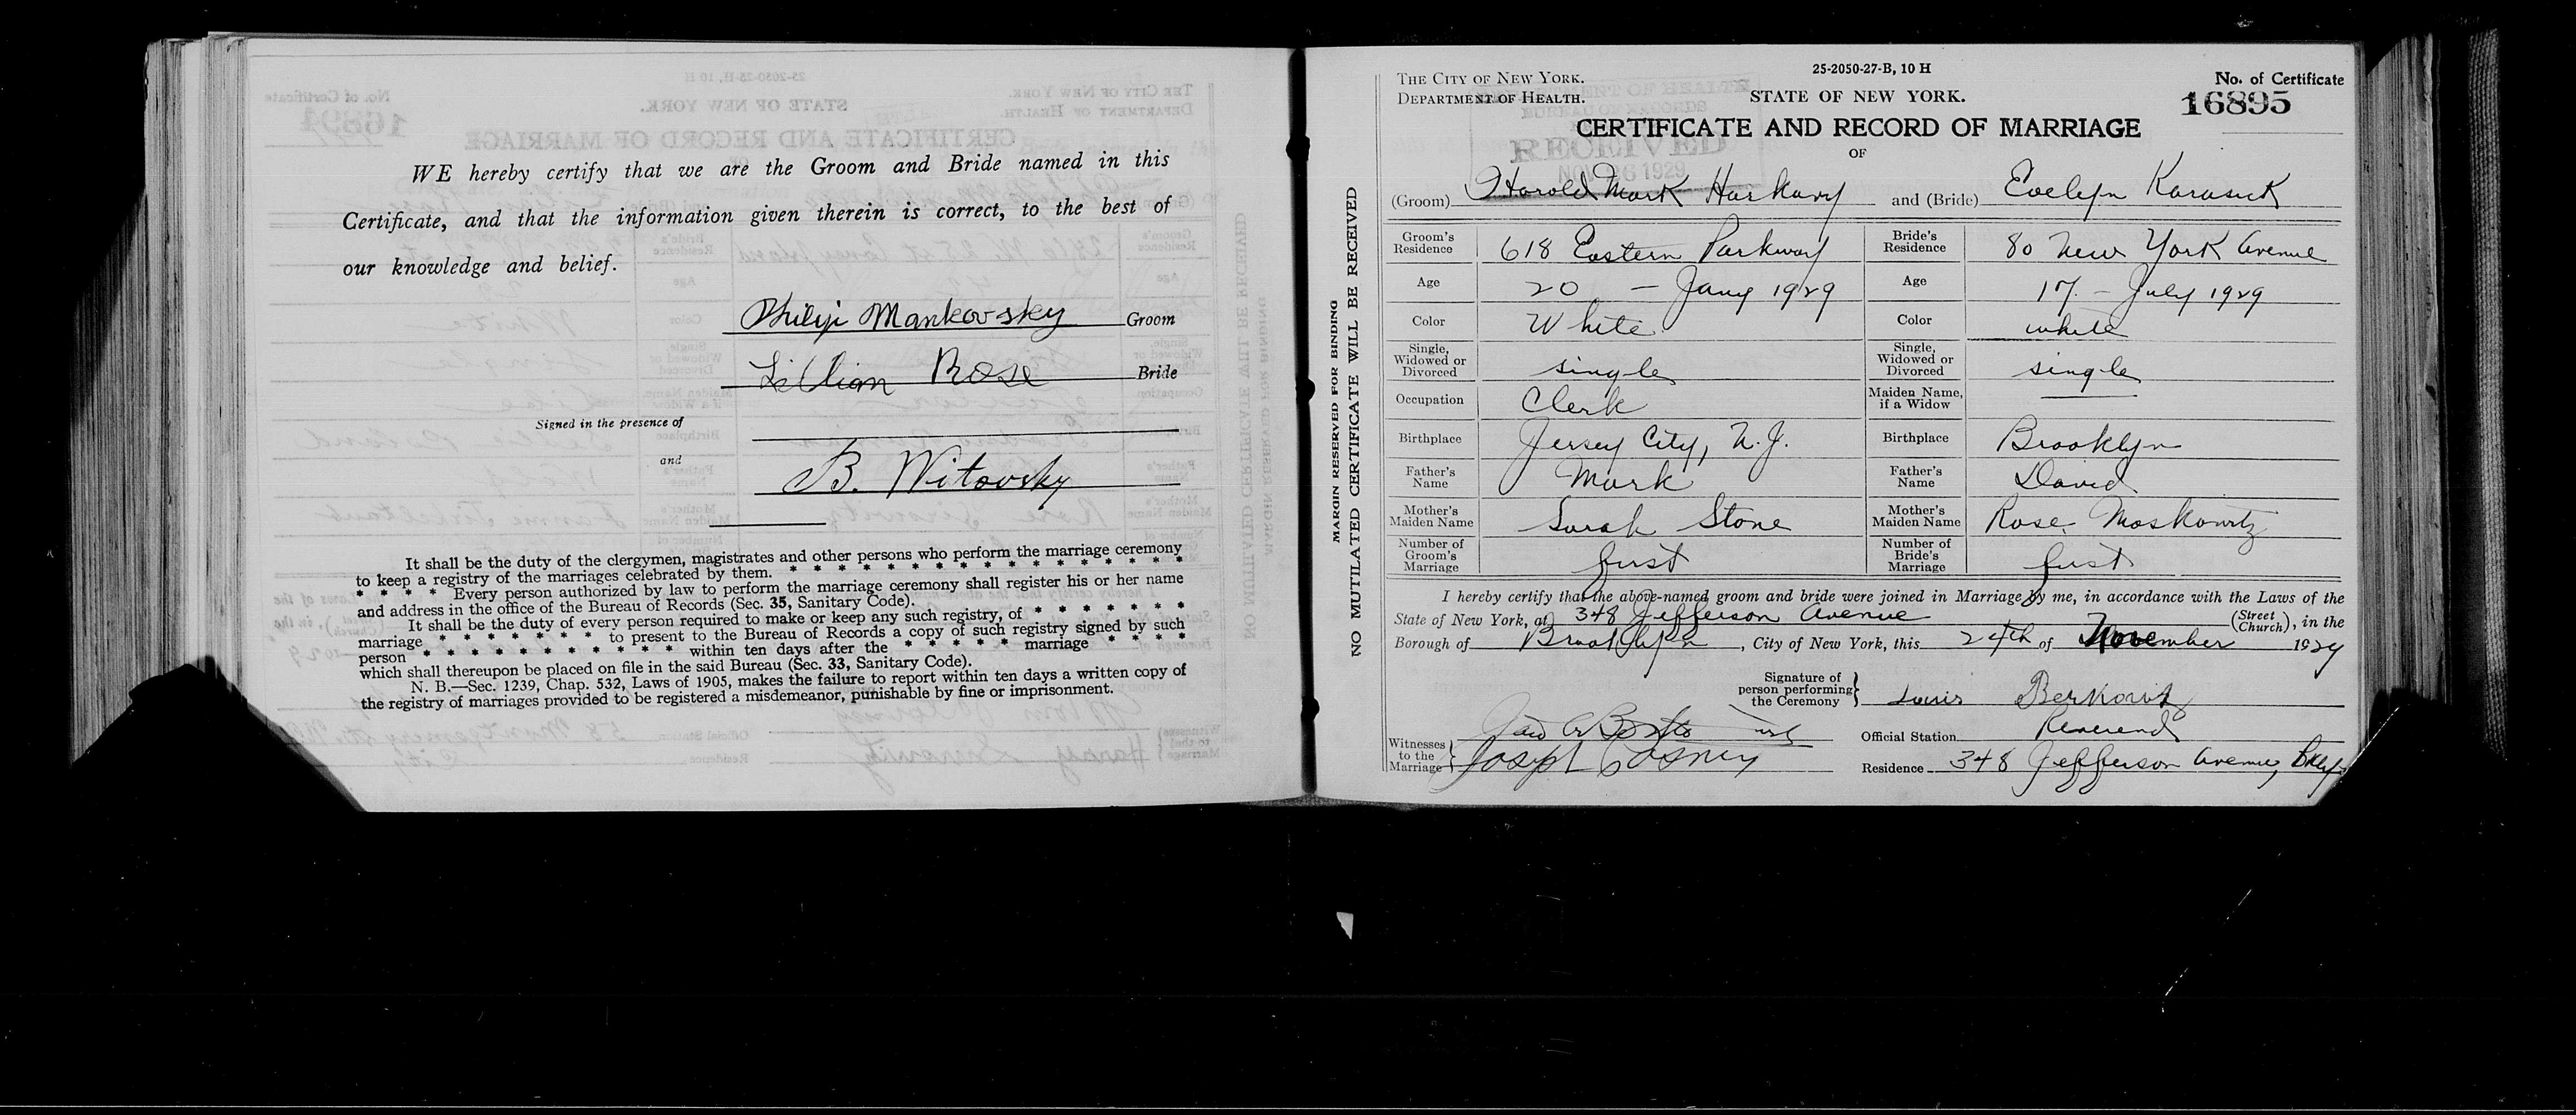 WE hereby certify that we are the Groom and Bride named in this
Certificate, and that the information given therein is correct, to the best of
our knowledge and belief.
Philip Mankovsky Groom
Lillian Rose Bride
Signed in the presence of
and B. Witovsky
It shall be the duty of the clergymen, magistrates and other persons who perform the marriage ceremony
to keep a registry of the marriages celebrated by them. * * * * * * * * * * * * * * * * *
* * * * Every person authorized by law to perform the marriage ceremony shall register his or her name
and address in the office of the Bureau of Records (Sec. 35, Sanitary Code).
It shall be the duty of every person required to make or keep any such registry, of * * * * * * *
marriage * * * * * * * to present to the Bureau of Records a copy of such registry signed by such
person * * * * * * * * * * * within ten days after the * * * * * marriage * * * *
which shall thereupon be placed on file in the said Bureau (Sec. 33, Sanitary Code).
N. B.—Sec. 1239, Chap. 532, Laws of 1905, makes the failure to report within ten days a written copy of
the registry of marriages provided to be registered a misdemeanor, punishable by fine or imprisonment.
MARGIN RESERVED FOR BINDING
NO MUTILATED CERTIFICATE WILL BE RECEIVED
25-2050-27-B, 10 H
THE CITY OF NEW YORK. No. of Certificate
DEPARTMENT OF HEALTH. STATE OF NEW YORK. 16895
DEPARTMENT OF HEALTH
BUREAU OF RECORDS
RECEIVED
NOV 26 1929
CERTIFICATE AND RECORD OF MARRIAGE
OF
(Groom) Harold Mark Harkavy and (Bride) Evelyn Karasick
Groom's Residence 618 Eastern Parkway Bride's Residence 80 New York Avenue
Age 20 – Jany 1929 Age 17 – July 1929
Color White Color white
Single, Widowed or Divorced single Single, Widowed or Divorced single
Occupation Clerk Maiden Name, if a Widow
Birthplace Jersey City, N.J. Birthplace Brooklyn
Father's Name Mark Father's Name David
Mother's Maiden Name Sarah Stone Mother's Maiden Name Rose Moskowitz
Number of Groom's Marriage first Number of Bride's Marriage first
I hereby certify that the above-named groom and bride were joined in Marriage by me, in accordance with the Laws of the
State of New York, at 348 Jefferson Avenue (Street Church), in the
Borough of Brooklyn, City of New York, this 24th of November 1929
Signature of person performing the Ceremony Louis Berkowitz
Official Station Reverend
Witnesses to the Marriage Joseph
Residence 348 Jefferson Avenue, Bklyn